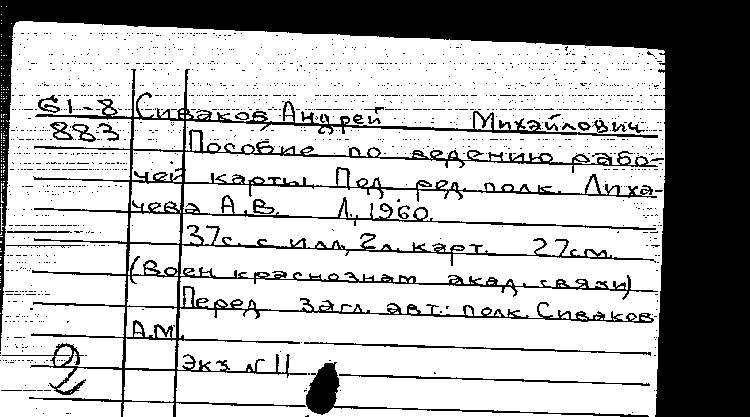 61-8 Сиваков, Андрей Михайлович
883 Пособие по ведению рабо-
чей карты. Под ред. полк. Лиха-
чева А.В. Л., 1960.
37с. с илл., 2л. карт. 27см.
(Воен краснознам акад. связи)
Перед загл. авт.: полк. Сиваков
А.М.
Экз № 11
2